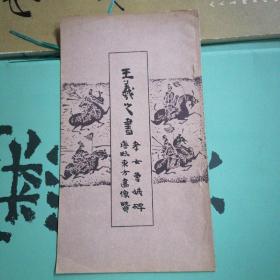 王羲之書
孝女曹娥碑
唐臨東方畫像贊